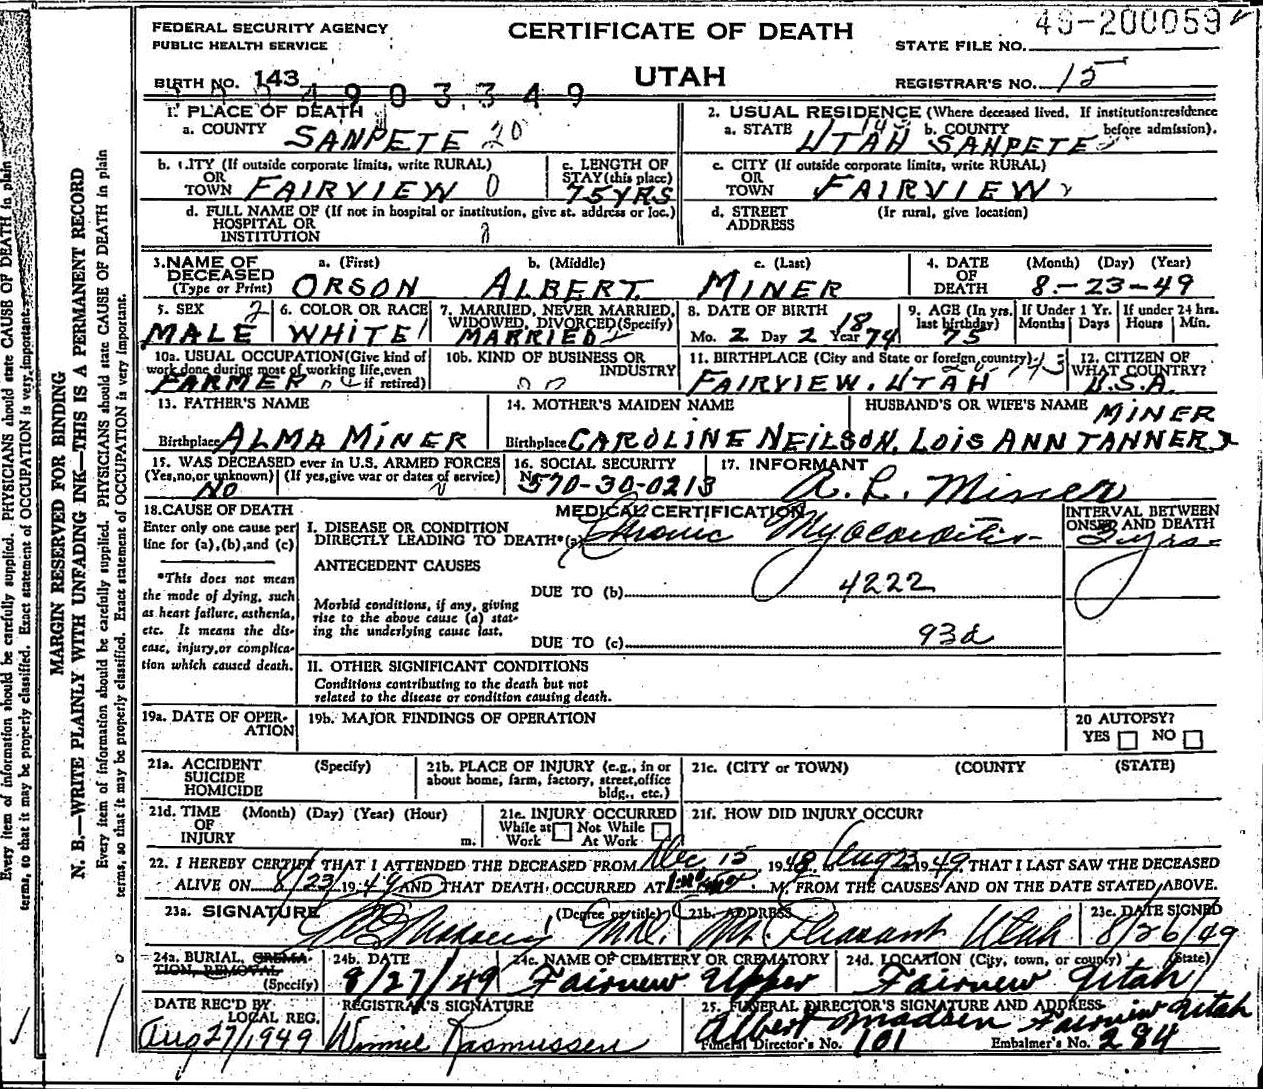 49-200059
FEDERAL SECURITY AGENCY
PUBLIC HEALTH SERVICE
CERTIFICATE OF DEATH
STATE FILE NO.
BIRTH NO. 143
UTAH
REGISTRAR'S NO. 15
4903349
1. PLACE OF DEATH
a. COUNTY SANPETE 20
2. USUAL RESIDENCE (Where deceased lived. If institution:residence before admission).
a. STATE UTAH b. COUNTY SANPETE
b. CITY (If outside corporate limits, write RURAL)
OR
TOWN FAIRVIEW 0
c. LENGTH OF
STAY (this place)
75 YRS
c. CITY (If outside corporate limits, write RURAL)
OR
TOWN FAIRVIEW
d. FULL NAME OF (If not in hospital or institution, give st. address or loc.)
HOSPITAL OR
INSTITUTION
d. STREET (If rural, give location)
ADDRESS
3. NAME OF DECEASED
(Type or Print)
a. (First) b. (Middle) c. (Last)
ORSON ALBERT MINER
4. DATE OF DEATH
(Month) (Day) (Year)
8-23-49
5. SEX 2
MALE
6. COLOR OR RACE
WHITE
7. MARRIED, NEVER MARRIED,
WIDOWED, DIVORCED (Specify)
MARRIED
8. DATE OF BIRTH
Mo. 2 Day 2 Year 1874
9. AGE (In yrs. last birthday)
75
If Under 1 Yr.
Months Days
If under 24 hrs.
Hours Min.
10a. USUAL OCCUPATION (Give kind of
work done during most of working life, even
if retired)
FARMER
10b. KIND OF BUSINESS OR
INDUSTRY
11. BIRTHPLACE (City and State or foreign country)
FAIRVIEW, UTAH
12. CITIZEN OF
WHAT COUNTRY?
U.S.A.
13. FATHER'S NAME
Birthplace ALMA MINER
14. MOTHER'S MAIDEN NAME
Birthplace CAROLINE NEILSON.
HUSBAND'S OR WIFE'S NAME MINER
LOIS ANN TANNER
15. WAS DECEASED ever in U.S. ARMED FORCES
(Yes, no, or unknown) (If yes, give war or dates of service)
NO
16. SOCIAL SECURITY
No. 570-30-0213
17. INFORMANT
A. L. Miner
18. CAUSE OF DEATH
Enter only one cause per
line for (a), (b), and (c)
*This does not mean
the mode of dying, such
as heart failure, asthenia,
etc. It means the dis-
ease, injury, or complica-
tion which caused death.
MEDICAL CERTIFICATION
I. DISEASE OR CONDITION
DIRECTLY LEADING TO DEATH*(a) Chronic Myocarditis
INTERVAL BETWEEN
ONSET AND DEATH
ANTECEDENT CAUSES
DUE TO (b) 4222
Morbid conditions, if any, giving
rise to the above cause (a) stat-
ing the underlying cause last.
DUE TO (c) 93d
II. OTHER SIGNIFICANT CONDITIONS
Conditions contributing to the death but not
related to the disease or condition causing death.
19a. DATE OF OPER-
ATION
19b. MAJOR FINDINGS OF OPERATION
20 AUTOPSY?
YES NO
21a. ACCIDENT (Specify)
SUICIDE
HOMICIDE
21b. PLACE OF INJURY (e.g., in or
about home, farm, factory, street, office
bldg., etc.)
21c. (CITY or TOWN) (COUNTY) (STATE)
21d. TIME (Month) (Day) (Year) (Hour)
OF
INJURY m.
21e. INJURY OCCURRED
While at Work Not While At Work
21f. HOW DID INJURY OCCUR?
22. I HEREBY CERTIFY THAT I ATTENDED THE DECEASED FROM Dec 15, 1948, to Aug 23, 1949, THAT I LAST SAW THE DECEASED
ALIVE ON 8/23, 1949 AND THAT DEATH OCCURRED AT M. FROM THE CAUSES AND ON THE DATE STATED ABOVE.
23a. SIGNATURE (Degree or title)
M.D.
23b. ADDRESS
Mt. Pleasant Utah
23c. DATE SIGNED
8/26/49
24a. BURIAL, CREMA-
TION, REMOVAL
(Specify)
24b. DATE
8/27/49
24c. NAME OF CEMETERY OR CREMATORY
Fairview Upper
24d. LOCATION (City, town, or county) (State)
Fairview Utah
DATE REC'D BY
LOCAL REG.
Aug 27/1949
REGISTRAR'S SIGNATURE
Winnie Rasmussen
25. FUNERAL DIRECTOR'S SIGNATURE AND ADDRESS
Albert Madsen Fairview Utah
Funeral Director's No. 101 Embalmer's No. 284
MARGIN RESERVED FOR BINDING
N. B.—WRITE PLAINLY WITH UNFADING INK—THIS IS A PERMANENT RECORD
Every item of information should be carefully supplied. PHYSICIANS should state CAUSE OF DEATH in plain
terms, so that it may be properly classified. Exact statement of OCCUPATION is very important.
Every item of information should be carefully supplied. PHYSICIANS should state CAUSE OF DEATH in plain
terms, so that it may be properly classified. Exact statement of OCCUPATION is very important.